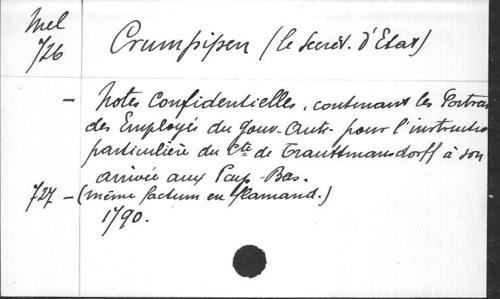 Mel
726 Crumpipen (le Secrét. d'Etat)
- Notes Confidentielles, contenant les Portrai
des Employés du Gouv. Autr. pour l'instructio
particulière du Cte de Trauttmansdorff à son
arrivée aux Pays-Bas.
727 - (même factum en flamand.)
1790.